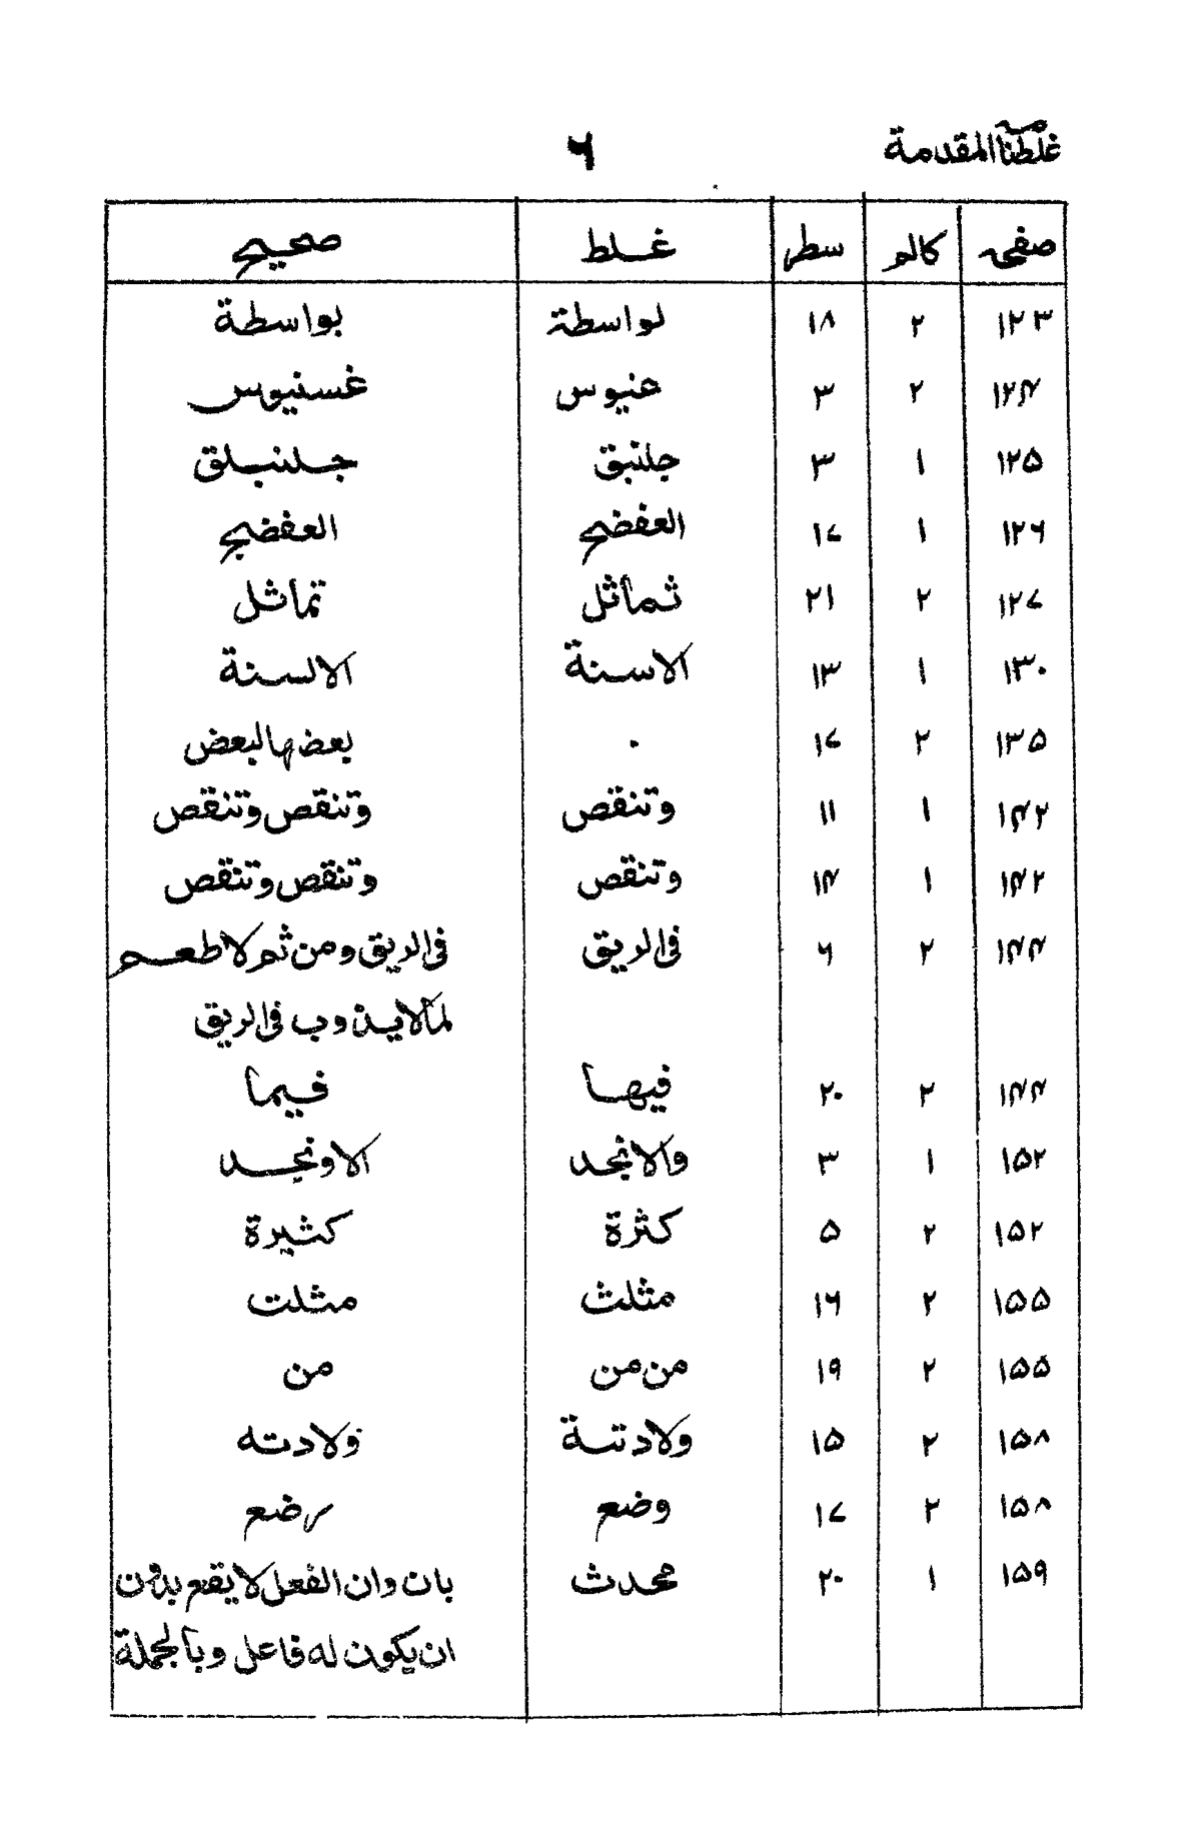 غلطنامۃ المقدمة ۶
صفحہ کالم سطر غلط صحیح
۱۲۳ ۲ ۱۸ لواسطة بواسطة
۱۲۴ ۲ ۳ عنیوس غسنیوس
۱۲۵ ۱ ۳ جلنبق جلنبلق
۱۲۶ ۱ ۱۷ العفضح العفضج
۱۲۷ ۲ ۲۱ ثماثل تماثل
۱۳۰ ۱ ۱۳ الاسنة الالسنة
۱۳۵ ۲ ۱۷ ۰ بعضها لبعض
۱۴۲ ۱ ۱۱ وتنقص وتنقص وتنقص
۱۴۲ ۱ ۱۴ وتنقص وتنقص وتنقص
۱۴۴ ۲ ۶ فی الریق فی الریق ومن ثم لا طعم
لما لا یذوب فی الریق
۱۴۴ ۲ ۲۰ فیها فیما
۱۵۲ ۱ ۳ والانجد الاونجد
۱۵۲ ۲ ۵ کثرة کثیرة
۱۵۵ ۲ ۱۶ مثلث مثلت
۱۵۵ ۲ ۱۹ من من من
۱۵۸ ۲ ۱۵ ولادتة ولادته
۱۵۸ ۲ ۱۷ وضع رضع
۱۵۹ ۱ ۲۰ محدث بان وان الفعل لا یقع بدون
ان یکون له فاعل وبالجملة